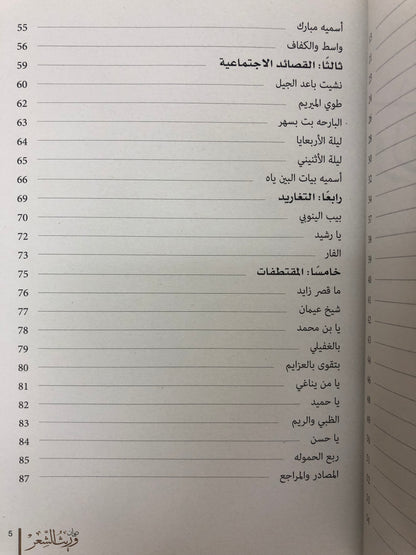 أسميه مبارك 55
واسط والكفاف 56
ثالثًا: القصائد الاجتماعية 59
نشيت باعد الجيل 60
طوي الميريم 62
البارحه بت بسهر 63
ليلة الأربعايا 64
ليلة الأثنيني 65
أسميه بيات البين ياه 66
رابعًا: التغاريد 69
بيب الينوبي 70
يا رشيد 72
الفار 73
خامسًا: المقتطفات 75
ما قصر زايد 76
شيخ عيمان 77
يا بن محمد 78
بالغفيلي 79
بتقوى بالعزايم 80
يا من يناغي 81
يا حميد 82
الظبي والريم 83
يا حسن 84
ربع الحموله 85
المصادر والمراجع 87
5